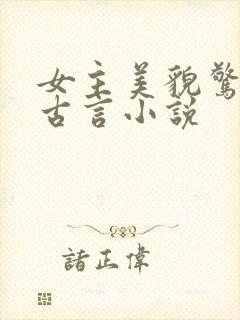 女主美貌驚
古言小説
諸正偉